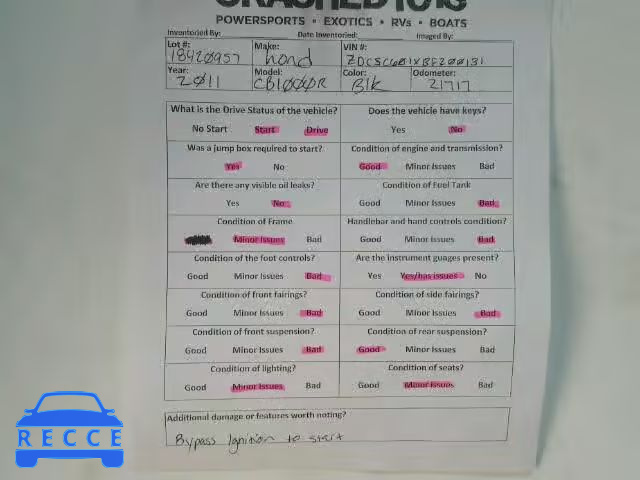 CRASHED TOYS
POWERSPORTS • EXOTICS • RVs • BOATS
Inventoried By: Date Inventoried: Imaged By:
Lot #: Make: VIN #:
18420957 Hond ZDCSC601XBF200131
Year: Model: Color: Odometer:
2011 CB1000R Blk 21717
What is the Drive Status of the vehicle? Does the vehicle have keys?
No Start Start Drive Yes No
Was a jump box required to start? Condition of engine and transmission?
Yes No Good Minor Issues Bad
Are there any visible oil leaks? Condition of Fuel Tank
Yes No Good Minor Issues Bad
Condition of Frame Handlebar and hand controls condition?
Minor Issues Bad Good Minor Issues Bad
Condition of the foot controls? Are the instrument guages present?
Good Minor Issues Bad Yes Yes/has issues No
Condition of front fairings? Condition of side fairings?
Good Minor Issues Bad Good Minor Issues Bad
Condition of front suspension? Condition of rear suspension?
Good Minor Issues Bad Good Minor Issues Bad
Condition of lighting? Condition of seats?
Good Minor Issues Bad Good Minor Issues Bad
Additional damage or features worth noting?
Bypass Ignition to start
RECCE